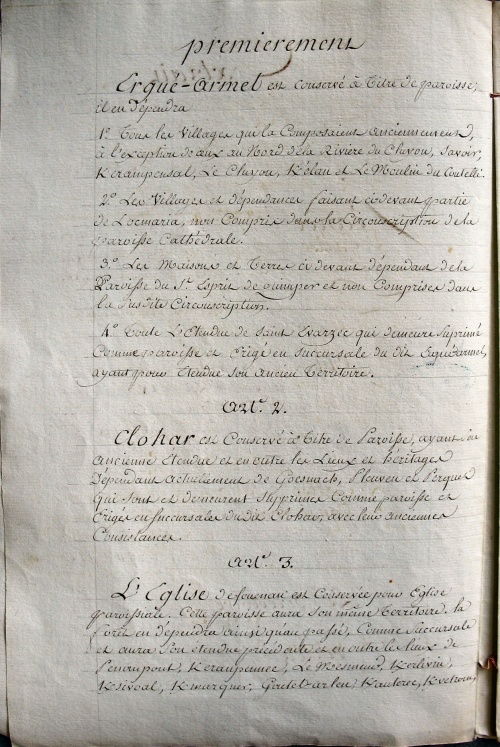 premierement
Ergué-armet est conservé à titre de paroisse;
il en dépendra
1.° Tous les Villages qui la Composaient anciennement,
à l'exception de ceux au Nord de la Riviere du
Kerampensal, Le et Le Moulin du
2.° Les Villages et dépendances faisant cidevant partie
de Locmaria, non Compris dans la Circonscription de la
paroisse Cathédrale.
3.° Les Maisons et Terres ci devant dépendant de la
Paroisse du St. Esprit de quimper et non Comprises dans
la Susdite Circonscription.
4.° Toute L'Etendue de Saint Evarzec qui demeure Suprimé
Comme paroisse et Erigé en Succursale du dit Ergué armet,
ayant pour Etendue son ancien Territoire.
Art. 2.
Clohar est Conservé à Titre de Paroisse, ayant son
ancienne Etendue et en outre les Lieux et héritages
dépendant actuellement de Goesnach, Pleuven et Perguet
qui Sont et demeurent Supprimés Comme paroisse et
Erigés en Succursales du dit Clohar, avec leurs anciennes
Consistances.
Art. 3.
L'Eglise de fouenan est Conservée pour Eglise
paroissiale. Cette paroisse aura son même territoire. la
foret en dépendra ainsi qu'au passé, Comme Succursale
et aura son étendue précédente et en outre les lieux de
Penarpont, Kerampennec, Le Mesmeur,